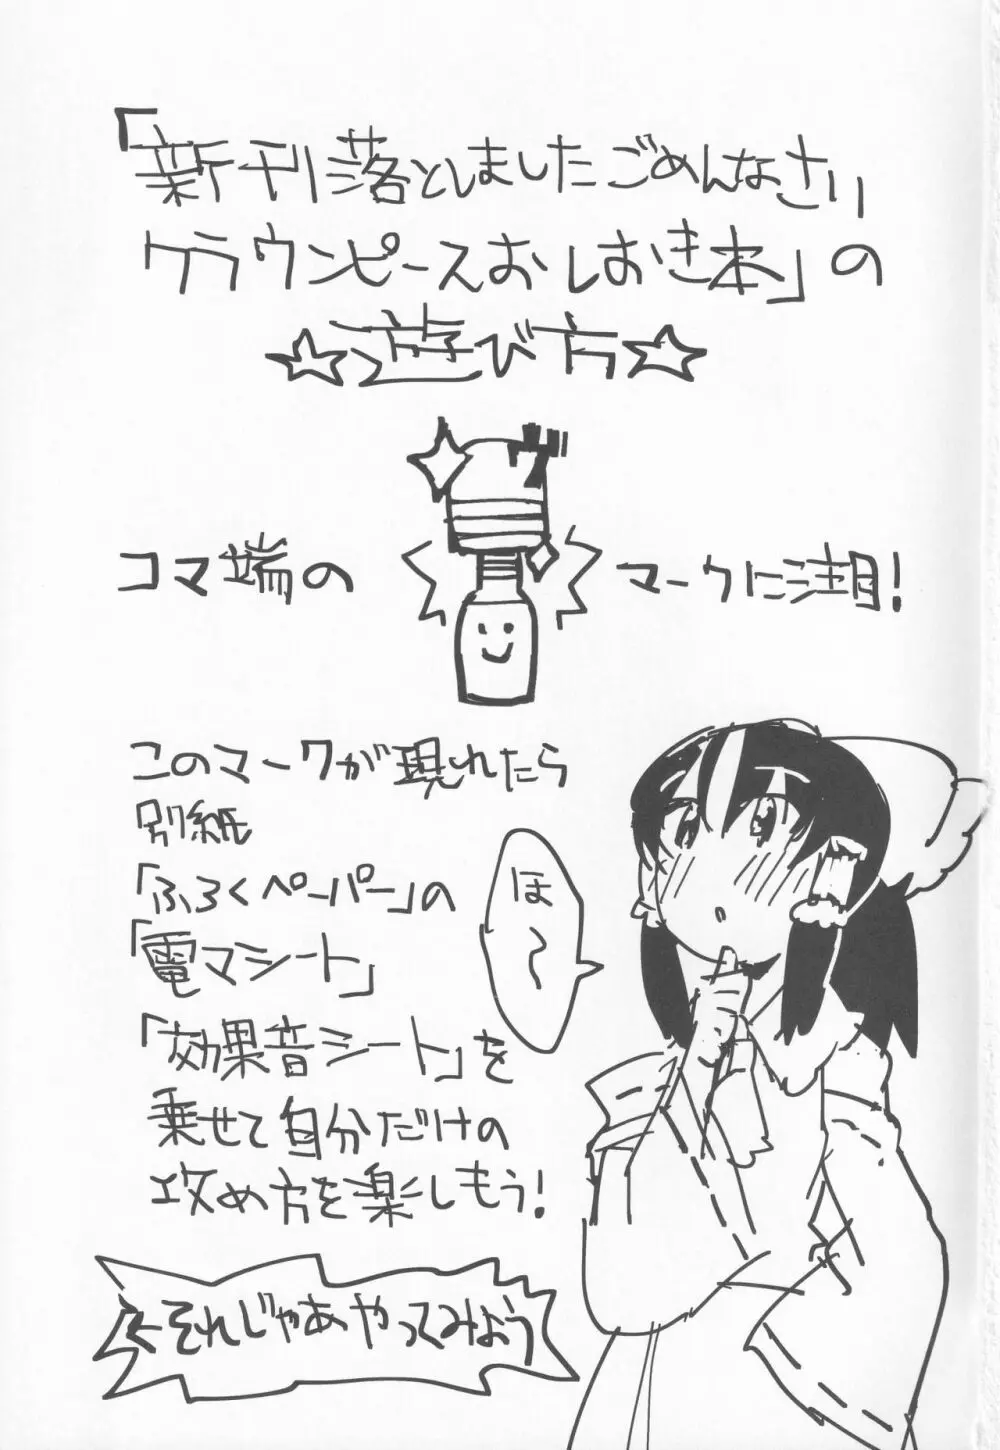 「新刊落としましたごめんなさい
クラウンピースおしおき本」の
☆遊び方☆
コマ端の
マークに注目!
このマークが現れたら
別紙
「ふろくペーパー」の
「電マシート」
「効果音シート」を
乗せて自分だけの
攻め方を楽しもう!
ほ～
←それじゃあやってみよう